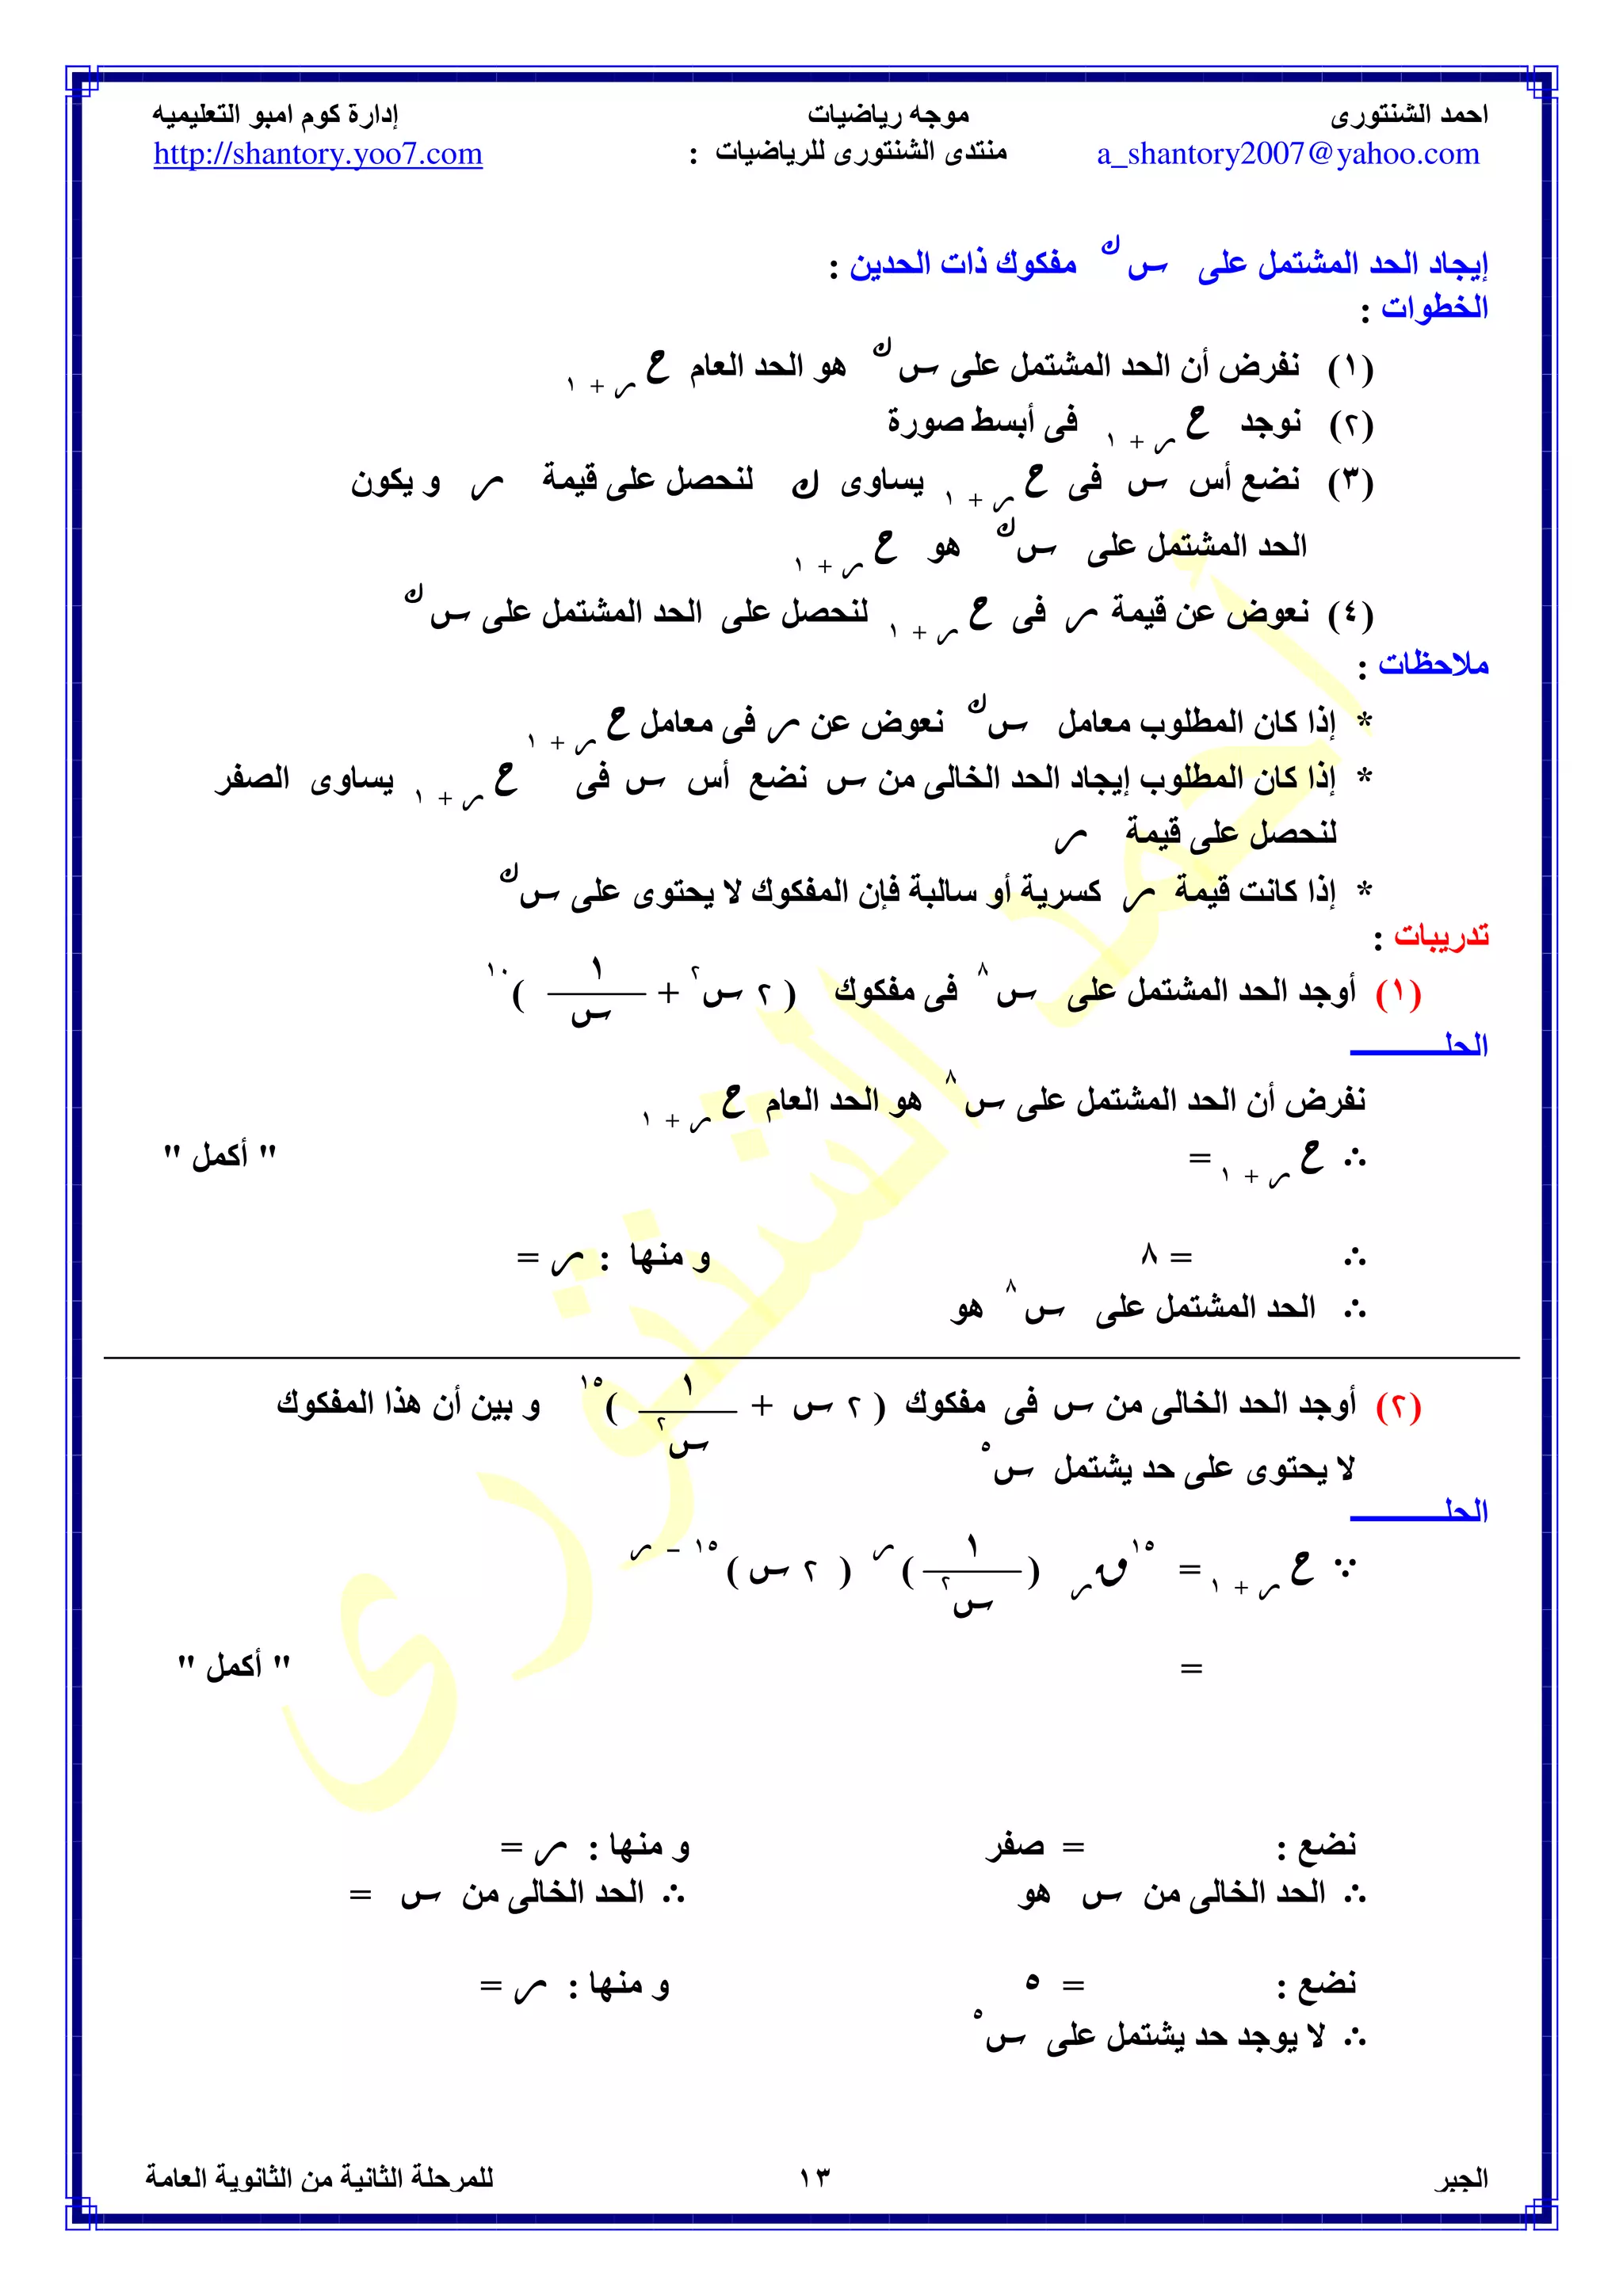 احمد الشنتورى موجه رياضيات إدارة كوم امبو التعليميه
a_shantory2007@yahoo.com منتدى الشنتورى للرياضيات : http://shantory.yoo7.com
إيجاد الحد المشتمل على س^ك مفكوك ذات الحدين :
الخطوات :
(١) نفرض أن الحد المشتمل على س^ك هو الحد العام ح ر + ١
(٢) نوجد ح ر + ١ فى أبسط صورة
(٣) نضع أس س فى ح ر + ١ يساوى ك لنحصل على قيمة ر و يكون
الحد المشتمل على س^ك هو ح ر + ١
(٤) نعوض عن قيمة ر فى ح ر + ١ لنحصل على الحد المشتمل على س^ك
ملاحظات :
* إذا كان المطلوب معامل س^ك نعوض عن ر فى معامل ح ر + ١
* إذا كان المطلوب إيجاد الحد الخالى من س نضع أس س فى ح ر + ١ يساوى الصفر
لنحصل على قيمة ر
* إذا كانت قيمة ر كسرية أو سالبة فإن المفكوك لا يحتوى على س^ك
تدريبات :
(١) أوجد الحد المشتمل على س^٨ فى مفكوك ( ٢ س^٢ + ١/س )^١٠
الحلــــــــــ
نفرض أن الحد المشتمل على س^٨ هو الحد العام ح ر + ١
∴ ح ر + ١ = " أكمل "
∴ = ٨ و منها : ر =
∴ الحد المشتمل على س^٨ هو
(٢) أوجد الحد الخالى من س فى مفكوك ( ٢ س + ١/س^٢ )^١٥ و بين أن هذا المفكوك
لا يحتوى على حد يشتمل س^٥
الحلــــــــــ
∵ ح ر + ١ = ^١٥ق ر ( ١/س^٢ )^ر ( ٢ س )^١٥ - ر
= " أكمل "
نضع : = صفر و منها : ر =
∴ الحد الخالى من س هو ∴ الحد الخالى من س =
نضع : = ٥ و منها : ر =
∴ لا يوجد حد يشتمل على س^٥
الجبر ١٣ للمرحلة الثانية من الثانوية العامة
أحمد الشنتورى